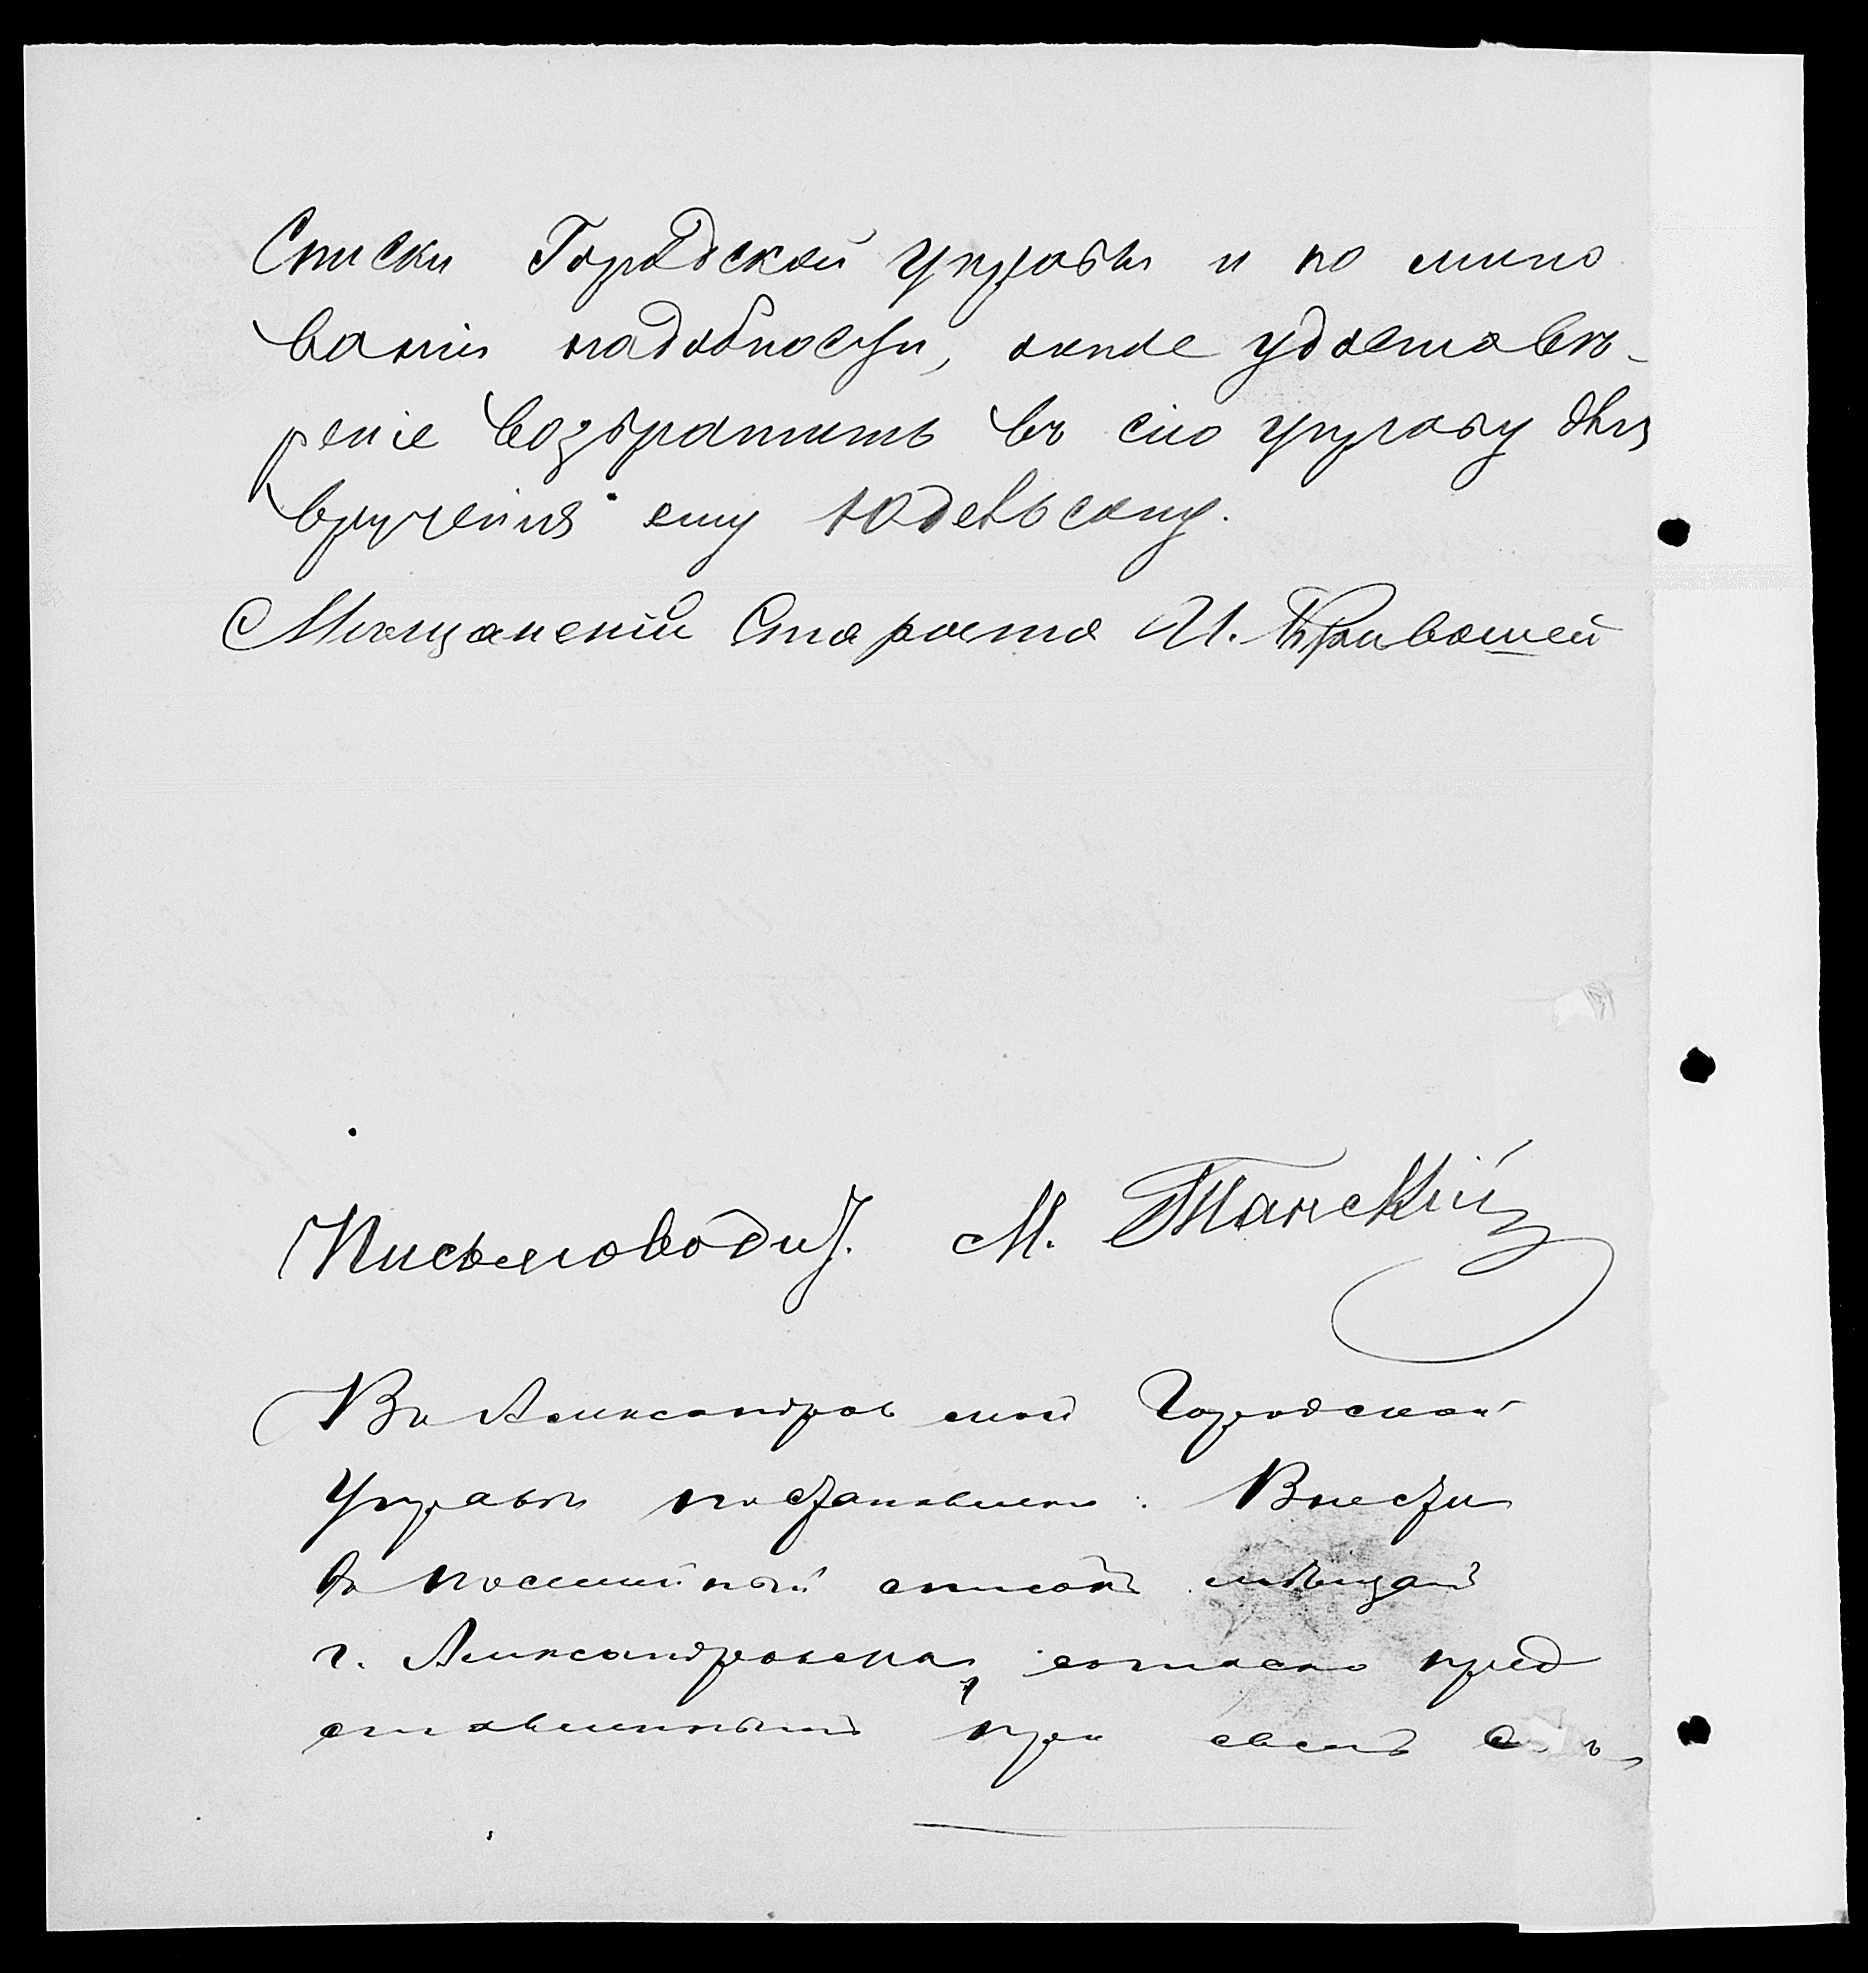 Списки Городской управы и по мино
ваніи надобности, оное удостовѣ-
реніе возвратить въ сію управу для
врученія ему Юдевьсону.
Мѣщанскій Староста И. Кривошей
Письмоводит. М. Танскій
Въ Александровской Городской
Управѣ постановлено: Внести
въ посемейный списокъ мѣщанъ
г. Александровска, согласно пред
ставленнымъ при семъ